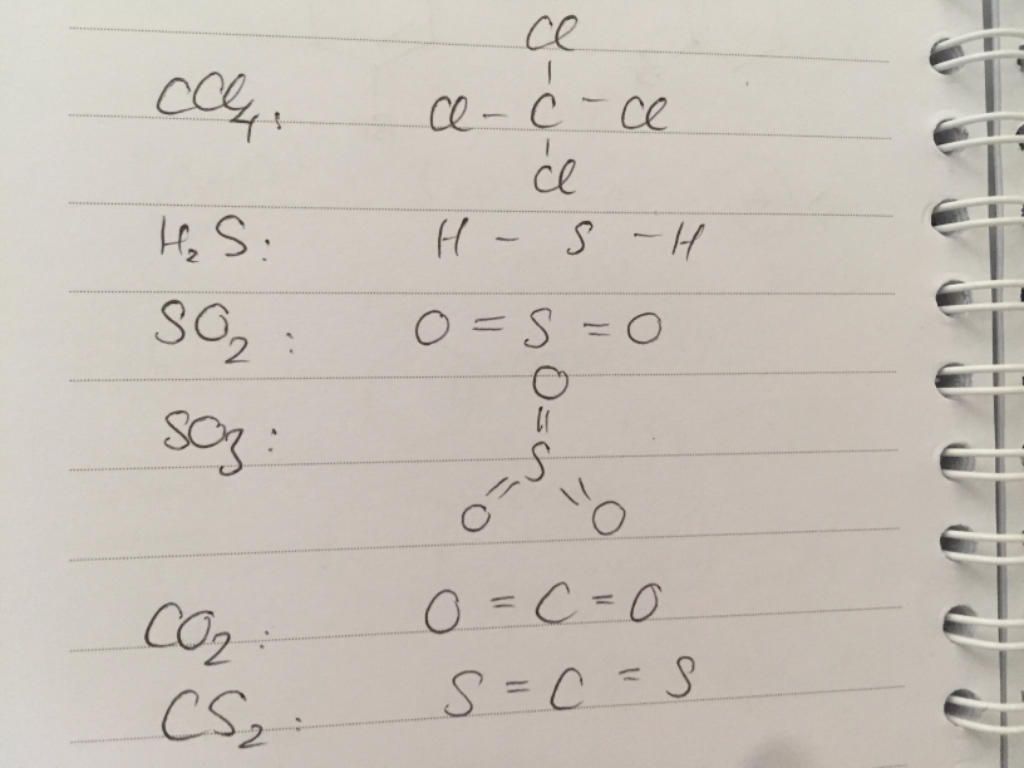 Cl
CCl4: Cl - C - Cl
Cl
H2S: H - S - H
SO2: O = S = O
O
SO3: S
O O
CO2: O = C = O
CS2: S = C = S